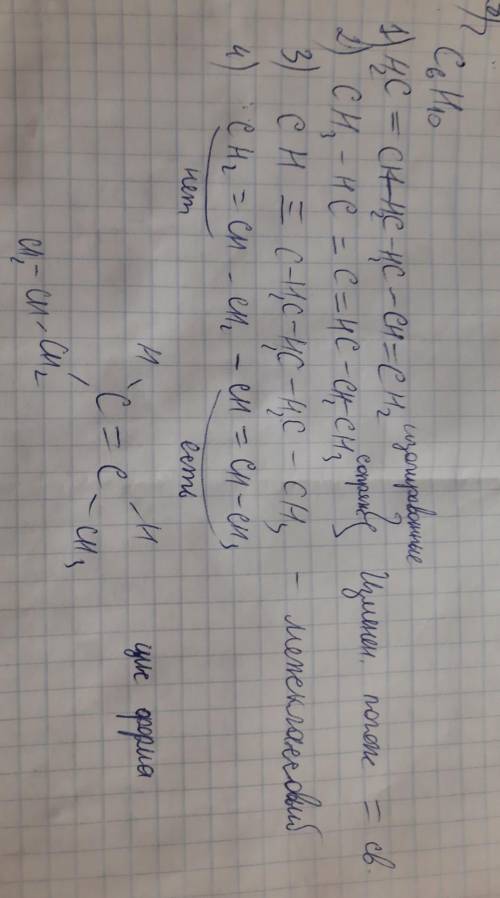 C₆H₁₀
1) H₂C = CH-H₂C-H₂C-CH=CH₂ изолированные
2) CH₃ - HC = C = HC - CH₂ CH₃ Изменен. полож = св.
3) CH ≡ C-H₂C-H₂C-H₂C-CH₃ - межклассовый
4) CH₂ = CH - CH₂ - CH = CH - CH₃
нет есть
H H
C = C
CH₂-CH-CH₂ - CH₃
цис форма